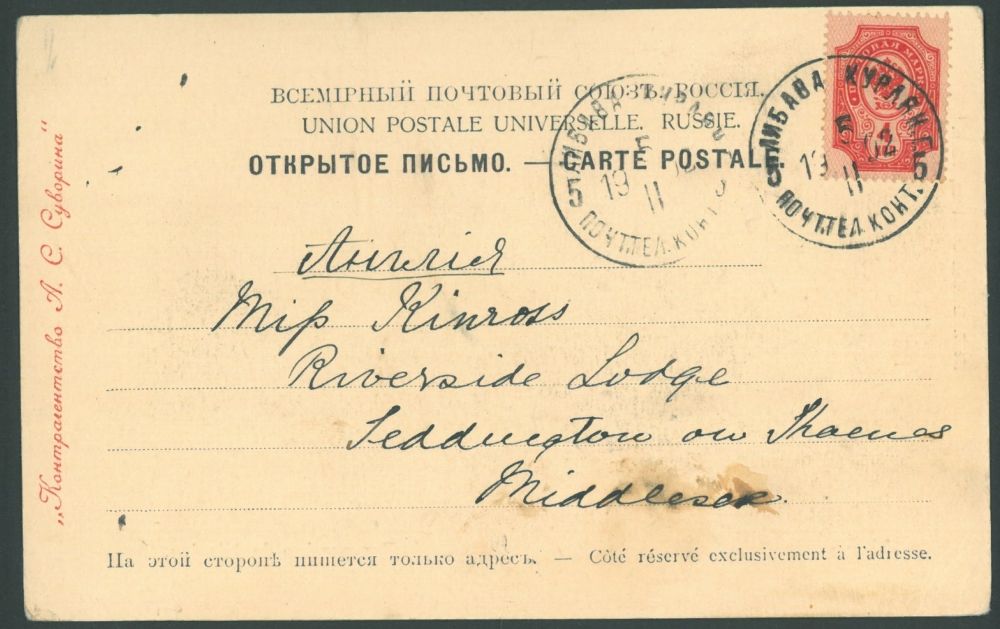 ВСЕМІРНЫЙ ПОЧТОВЫЙ СОЮЗЪ. РОССІЯ.
UNION POSTALE UNIVERSELLE. RUSSIE.
ОТКРЫТОЕ ПИСЬМО. — CARTE POSTALE.
ЛИБАВА КУРЛЯН.Г.
5 4
19 11 04
5 Б
ПОЧТ.ТЕЛ.КОНТ.
ЛИБАВА
19 11
5
ПОЧТ.ТЕЛ.КОНТ.
Англія
Miſs Kinross
Riverside Lodge
Teddington on Thames
Middlesex.
На этой сторонѣ пишется только адресъ. — Côté réservé exclusivement à l'adresse.
„Контрагентство А. С. Суворина"